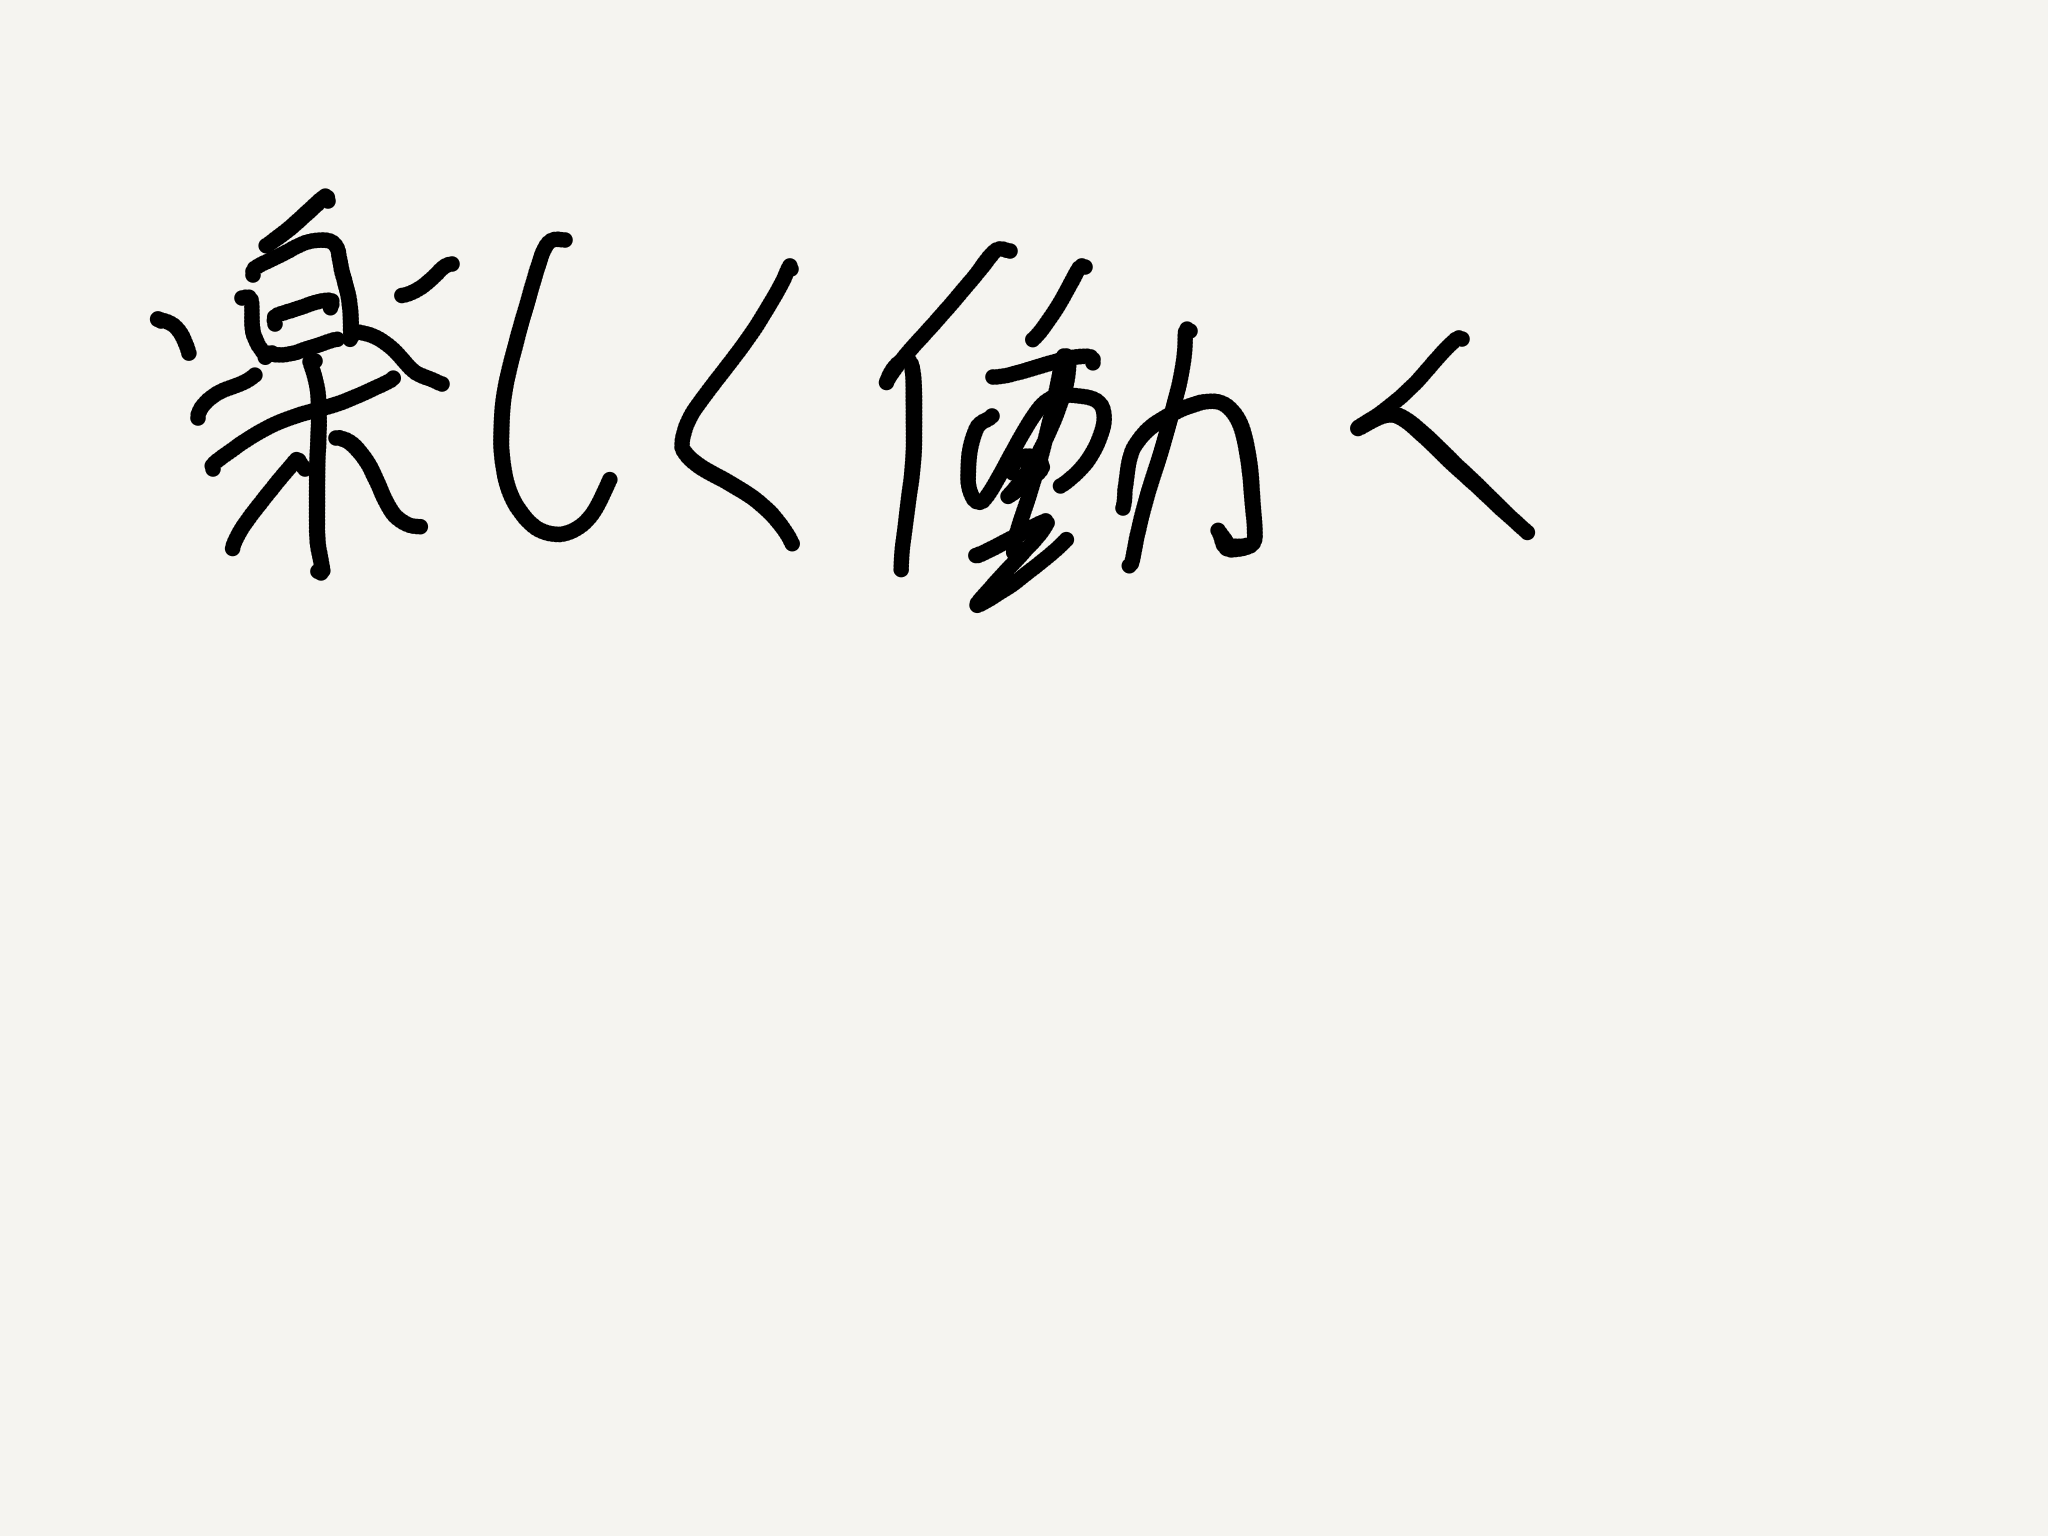 楽しく働く